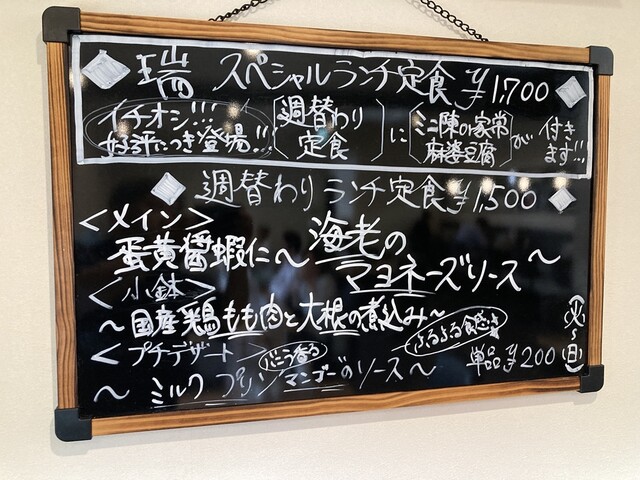 瑞 スペシャルランチ定食 ¥1,700
イチオシ!!! 好評につき登場!!! 週替わり定食 に ミニ陳の家常麻婆豆腐 が 付きます!!!
週替わり ランチ定食 ¥1,500
<メイン>
蛋黄醤蝦仁～海老の
マヨネーズソース～
<小鉢>
～国産鶏もも肉と大根の煮込み～
<プチデザート> バニラ香る ぷるぷる食感 単品¥200 (火～日)
～ミルクプリン マンゴーのソース～